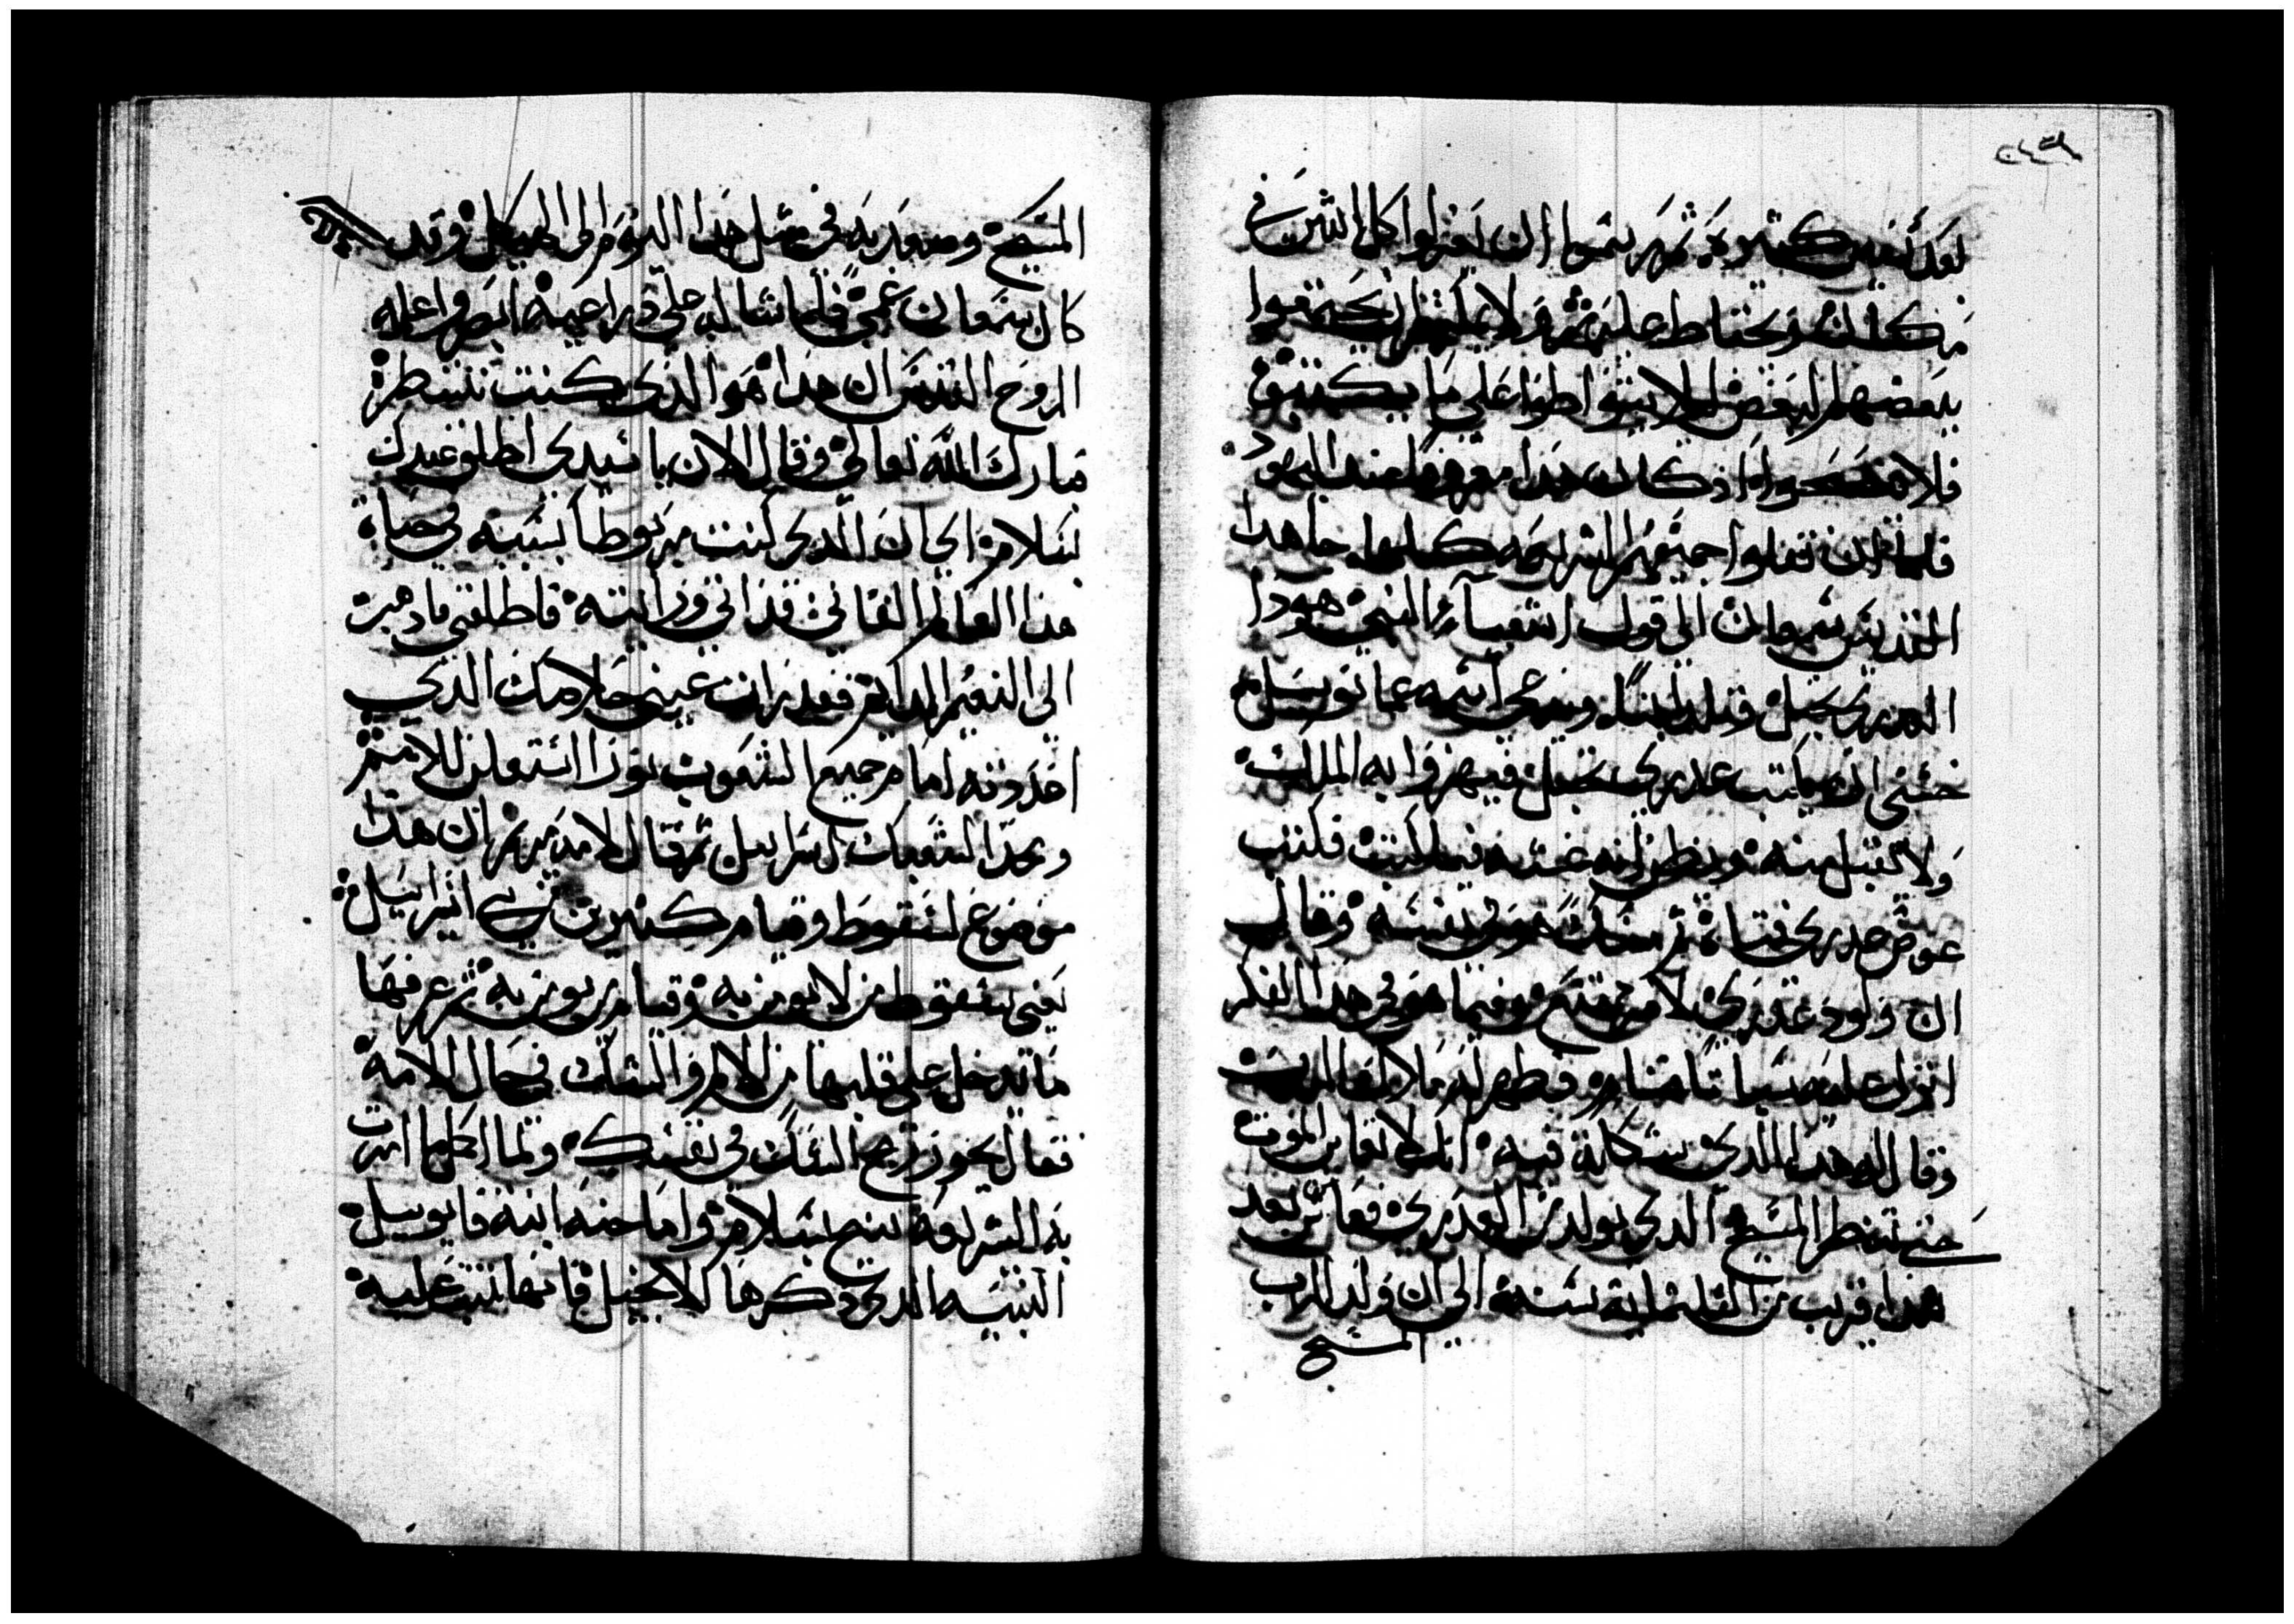 بعد أنفس كثيرة ثم رسموا ان يعزلوا كل اثنين في
مكان ويحتاط عليهم ولا يمكنهم ان يجتمعوا
بعضهم لبعض ليلا يتواطوا علي ما يكتبوه
فلا يصح اذ كان هذا معروفا عند اليهود
فلما ان نقلوا جميعهم الشريعه كلها جا هذا
القديس سمعان الي قول اشعياء النبي هوذا
العدري تحبل وتلد ابنا ويدعي اسمه عمانوييل
خشي ان يكتب عدري تحبل فيهزوا به الملك
ولا تقبل منه ويظن انه غشه فيما كتب فكتب
عوض عدري فتاة ثم شك هو في نفسه وقال
ان ولود عدري لامر ممتنع وفيما هو في هذا الفكر
انزل عليه سباتا فنام فظهر له ملاك الرب
وقال له هذا الذي شككت فيه انك لا تعاين الموت
حتي تنظر المسيح الذي يولد من العدري فعاش بعد
هذا قريب من الثلثماية سنه الي ان ولد الرب
المسيح
المسيح وصعد به في مثل هذا اليوم الي الهيكل وقد
كان سمعان عمي فلما شاله علي دراعيه ابصر واعلمه
الروح القدس ان هذا هو الذي كنت تنتظره
فبارك الله تعالي وقال الان يا سيدي اطلق عبدك
بسلام الي الان الذي كنت مربوطا بسببه في حياة
هذا العالم الفاني قد اتي ورايته فاطلقني لادهب
الي النعيم الدايم فقد رات عيني خلاصك الذي
اعددته امام جميع الشعوب نورا استعلن للامم
ومجدا لشعبك اسراييل ثم قال لامه مريم ان هذا
موضوع لسقوط وقيام كثيرين في اسراييل
يعني سقوط من لا يومن به وقيام من يومن به ثم عرفها
ما يدخل علي قلبها من الالم والشك في حال الالامه
فقال يجوز رمح الشك في نفسك ولما اكمل ما امرت
به الشريعه تنيح بسلام واما حنه ابنة فانوييل
النبيه الذي دكرها الانجيل فانها تنبت عليه